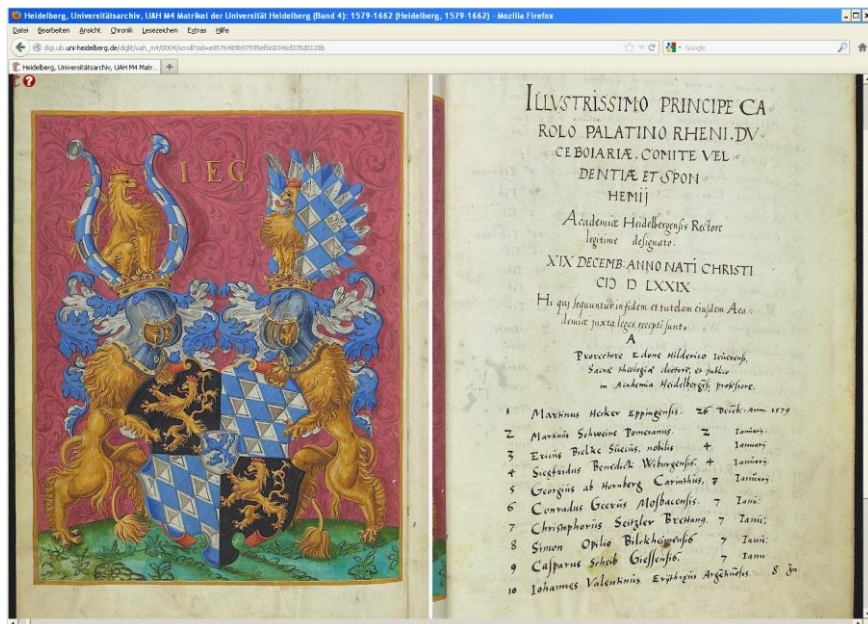 Heidelberg, Universitätsarchiv, UAH M4 Matrikel der Universität Heidelberg (Band 4): 1579-1662 (Heidelberg, 1579-1662) - Mozilla Firefox
Datei Bearbeiten Ansicht Chronik Lesezeichen Extras Hilfe
digi.ub.uni-heidelberg.de/diglit/uah_m4/0004/scroll?sid=
Google
Heidelberg, Universitätsarchiv, UAH M4 Matr...
?
I E G
ILLVSTRISSIMO PRINCIPE CA-
ROLO PALATINO RHENI. DV-
CE BOIARIÆ. COMITE VEL-
DENTIÆ ET SPON
HEMIJ
Academiæ Heidelbergensis Rectore
legitime designato.
XIX DECEMB: ANNO NATI CHRISTI
CIↃ IↃ LXXIX
Hi qui sequuntur in fidem et tutelam eiusdem Aca-
demiæ juxta leges recepti sunt.
A
Prorectore Edone Hilderico
Sacræ theologiæ doctore, et publico
in Academia professore.
1 Martinus Hecker Eppingensis. 26 Anni 1579
2 Martinus Schweine Pomeranus. 2 Ianuarij.
3 Ericus Bielke Suecus, nobilis 4 Ianuarij
4 Siegfridus Benedicti Wiburgensis. 4 Ianuarij.
5 Georgius ab Hornberg Carinthus. 7 Ianuarij.
6 Conradus Geerus Mosbacensis. 7 Ianu:
7 Christophorus Seitzler 7 Ianu:
8 Simon Opilio 7 Ianu:
9 Casparus Scheib Giessensis. 7 Ianu
10 Iohannes Valentinus Erythræus 8